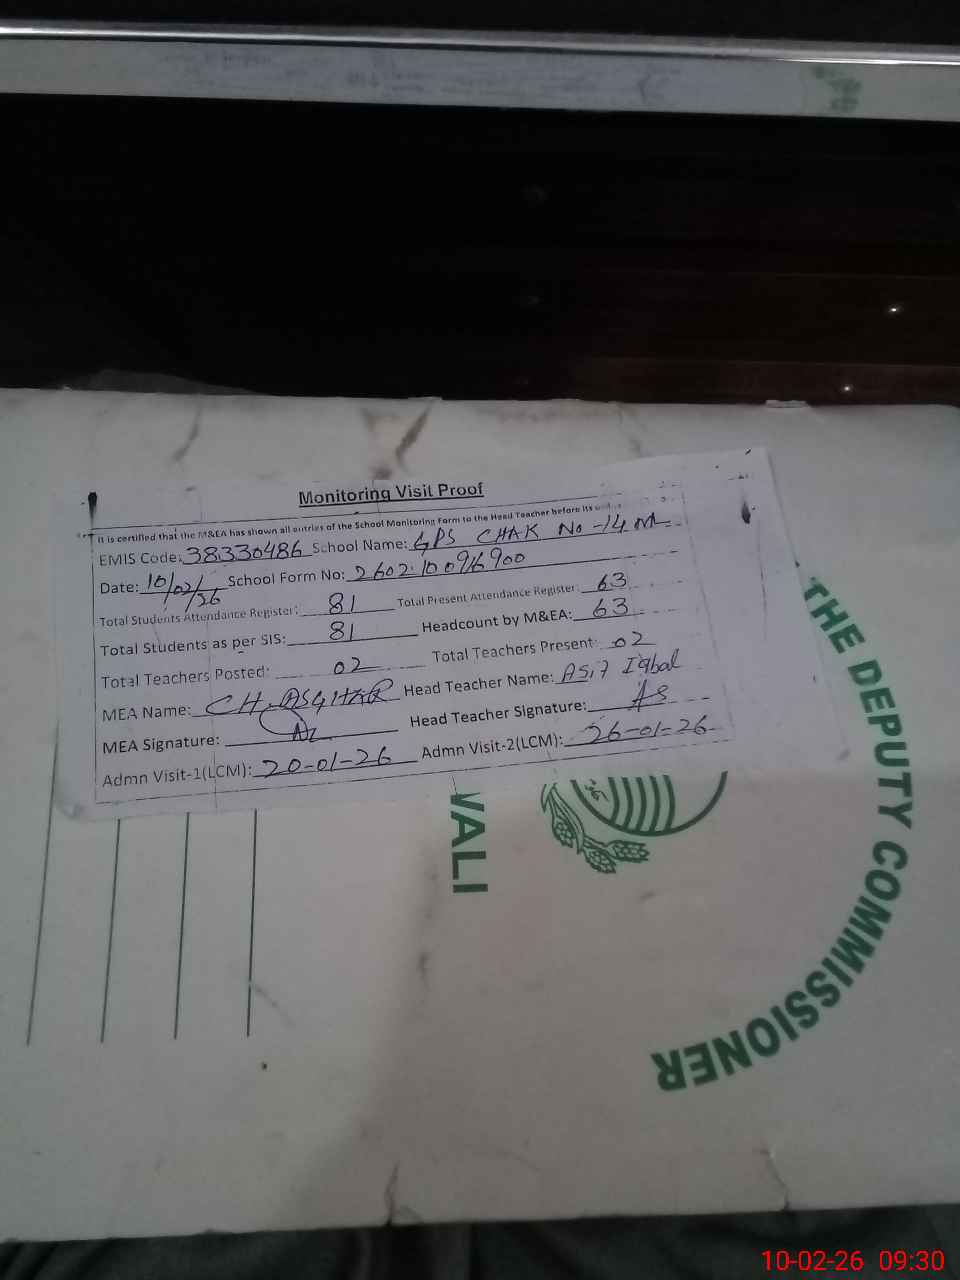 Monitoring Visit Proof
It is certified that the M&EA has shown all entries of the School Monitoring Form to the Head Teacher before its
EMIS Code: 38330486 School Name: GPS CHAK No-14 ML
Date: 10/02/26 School Form No: 2602100916900
Total Students Attendance Register: 81 Total Present Attendance Register: 63
Total Students as per SIS: 81 Headcount by M&EA: 63
Total Teachers Posted: 02 Total Teachers Present: 02
MEA Name: CH. ASGHAR Head Teacher Name: Asif Iqbal
MEA Signature: Head Teacher Signature: As
Admn Visit-1(LCM): 20-01-26 Admn Visit-2(LCM): 26-01-26
THE DEPUTY COMMISSIONER
WALI
10-02-26 09:30